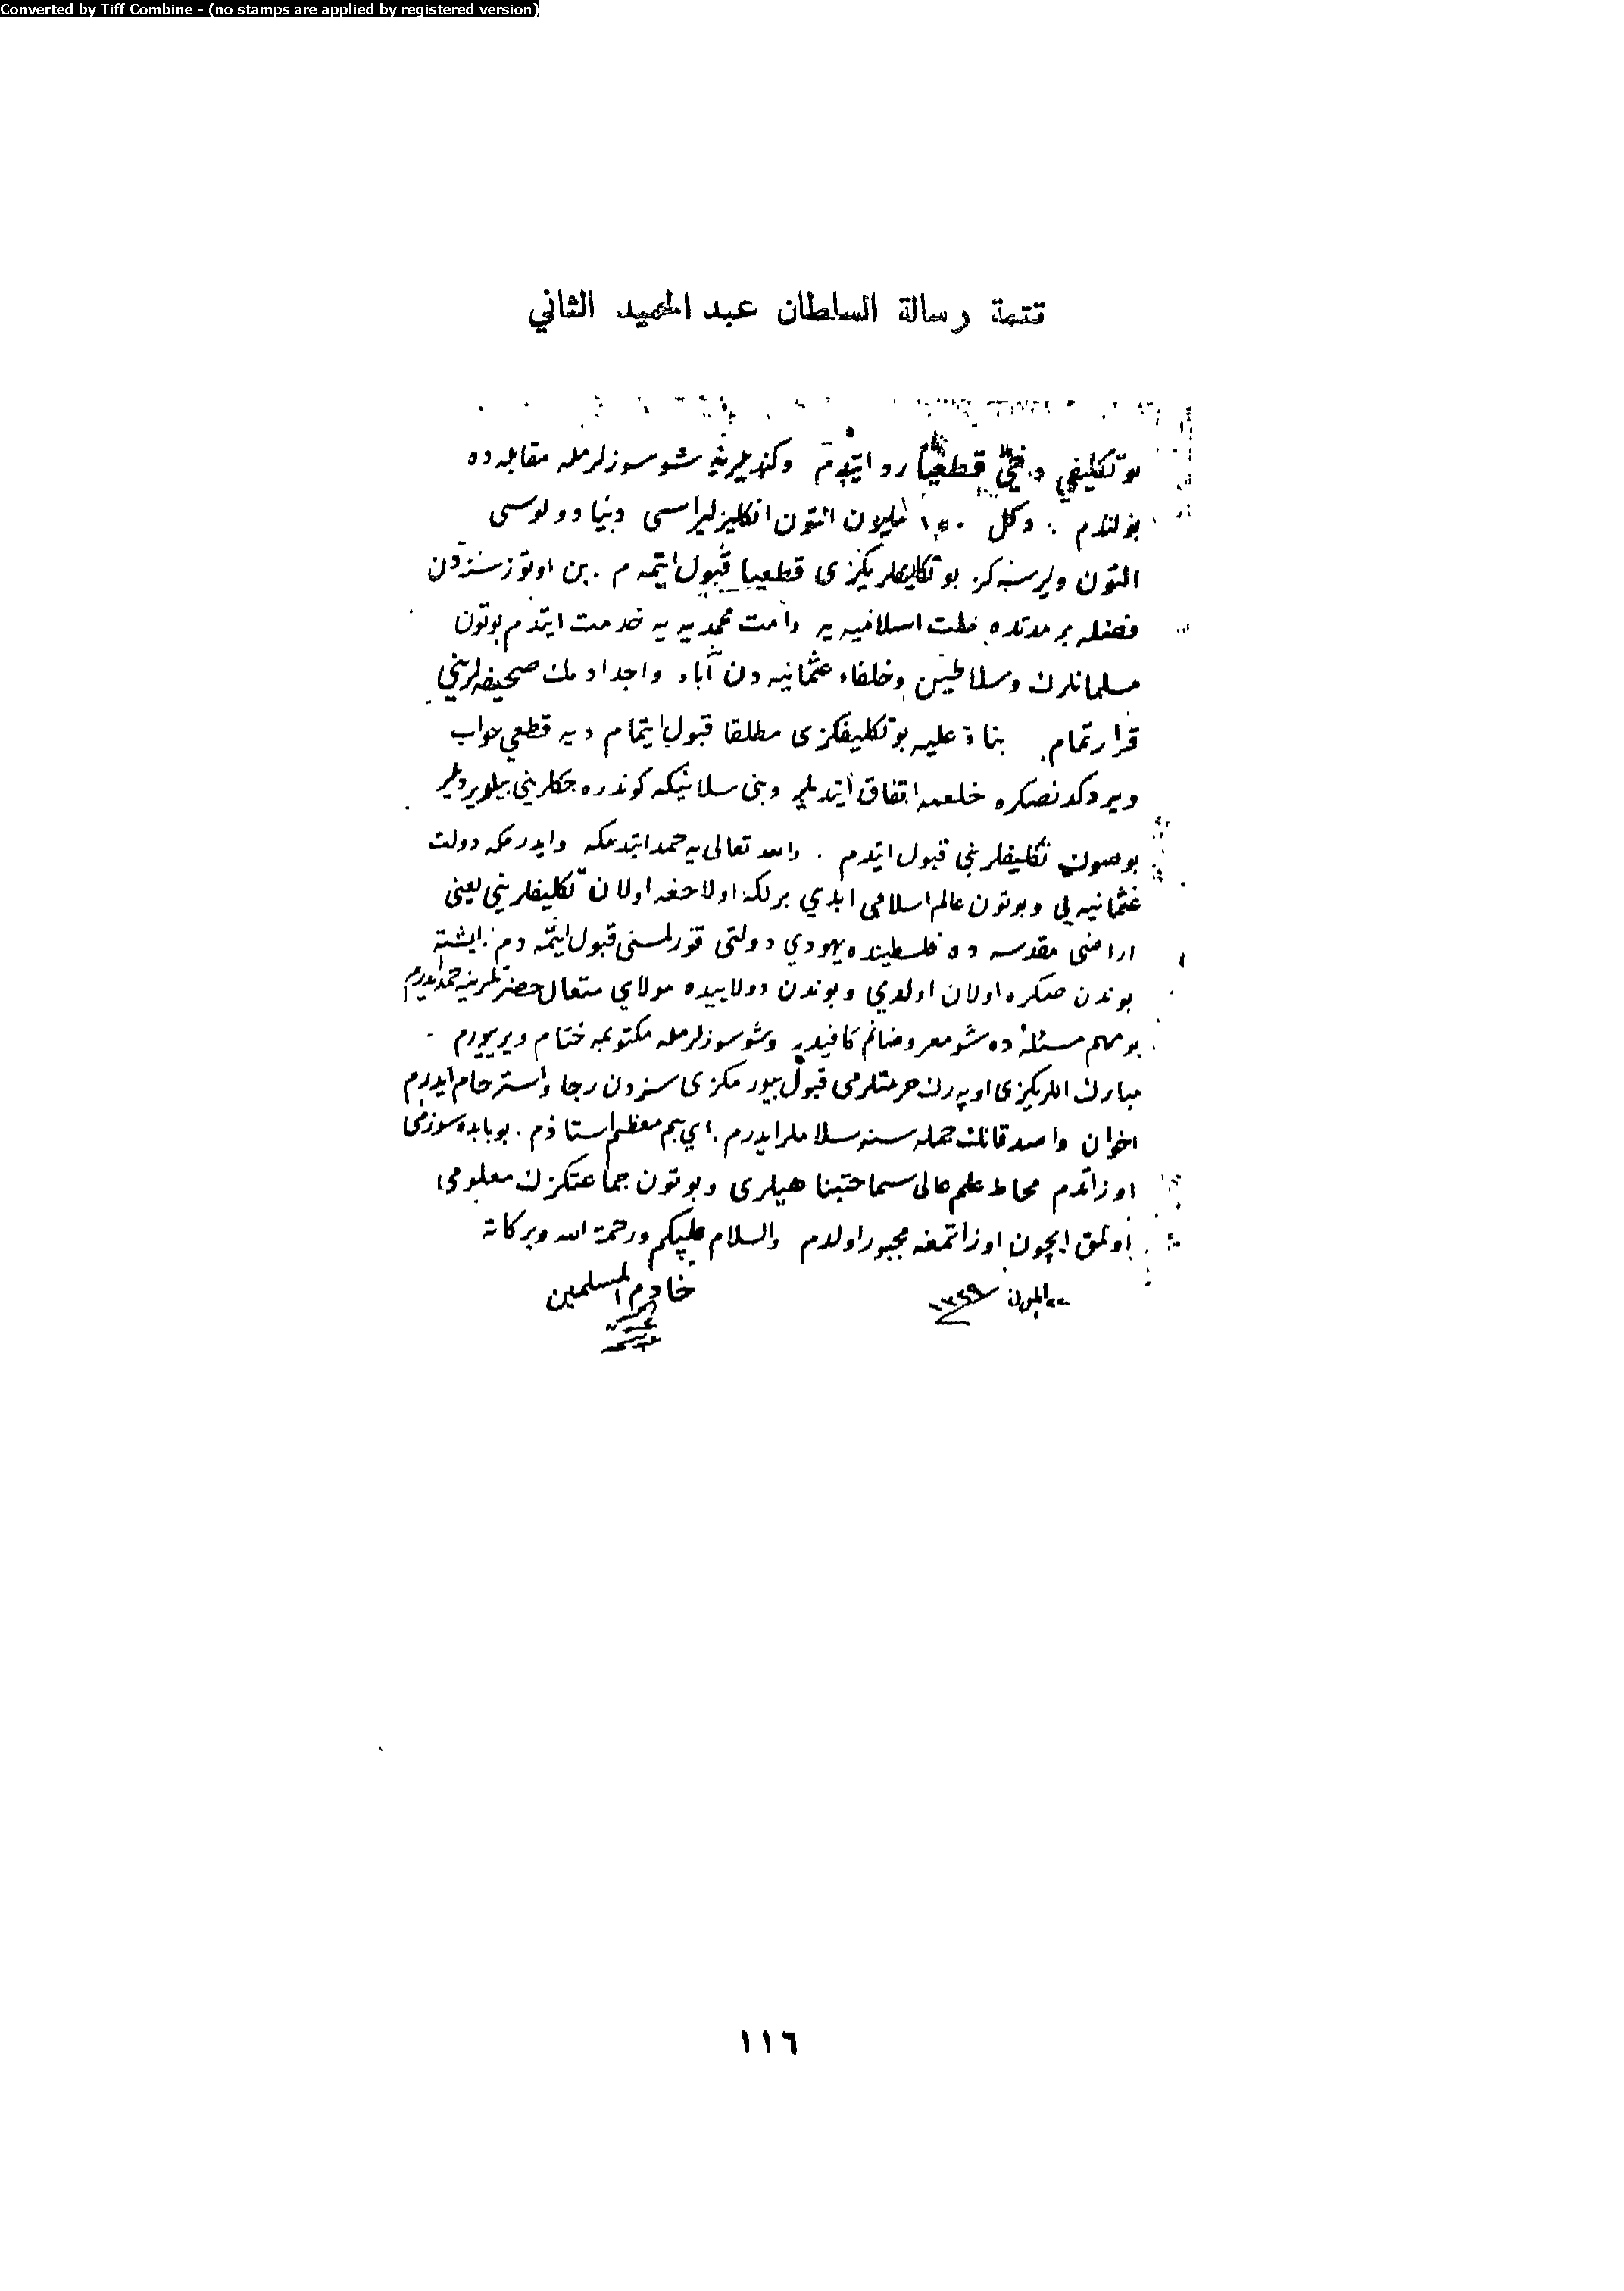 Converted by Tiff Combine - (no stamps are applied by registered version)
تتمة رسالة السلطان عبد الحميد الثاني
بو تكليفي دخي قطعيا رد ايتدم وكنديلرينه شو سوزلرمله مقابله ده
بولندم . دكل ١٥٠ مليون التون انكليز ليراسى دنيا دولوسى
التون ويرسه كز بو تكليفلريكزى قطعيا قبول ايتمه م . بن اوتوز سنه دن
فضله بر مدتده ملت اسلاميه يه وامت محمديه يه خدمت ايتدم بوتون
مسلمانلرك وسلاطين وخلفاء عثمانيه دن آباء واجدادمك صحيفه لريني
قرارتمام . بناء عليه بو تكليفكزى مطلقا قبول ايتمام ديه قطعي جواب
ويردكدنصكره خلعمده اتفاق ايتديلر وبنى سلانيكه كوندره جكلريني بيلديرديلر
بو صوك تكليفلريني قبول ايتدم . والله تعالى يه حمد ايتدمكه وايدرمكه دولت
عثمانيه يى وبوتون عالم اسلامى ابدي بر لكه اولاجغه اولان تكليفلريني يعنى
اراضى مقدسه ده فلسطينده يهودي دولتى قورلمسنى قبول ايتمه دم . ايشته
بوندن صكره اولان اولدي وبوندن دولاييده مولاي متعال حضرتلرينه حمد ايدرم
بو مهم مسئله ده شو معروضاتم كافيدر وشو سوزلرمله مكتوبمه ختام ويرييورم .
مبارك اللريكزى اوپه رك حرمتلرمى قبول بيورمكزى سزدن رجا واسترحام ايدرم
اخوان واصدقانك جمله سنه سلاملر ايدرم . اي بنم معظم استاذم . بو بابده سوزمى
اوزاتدم محاط علم عالى سماحتپناهيلرى وبوتون جماعتكزك معلومى
اولمق ايچون اوزاتمغه مجبور اولدم والسلام عليكم ورحمة الله وبركاته
ايلول ١٣٢٩
خادم المسلمين
١١٦